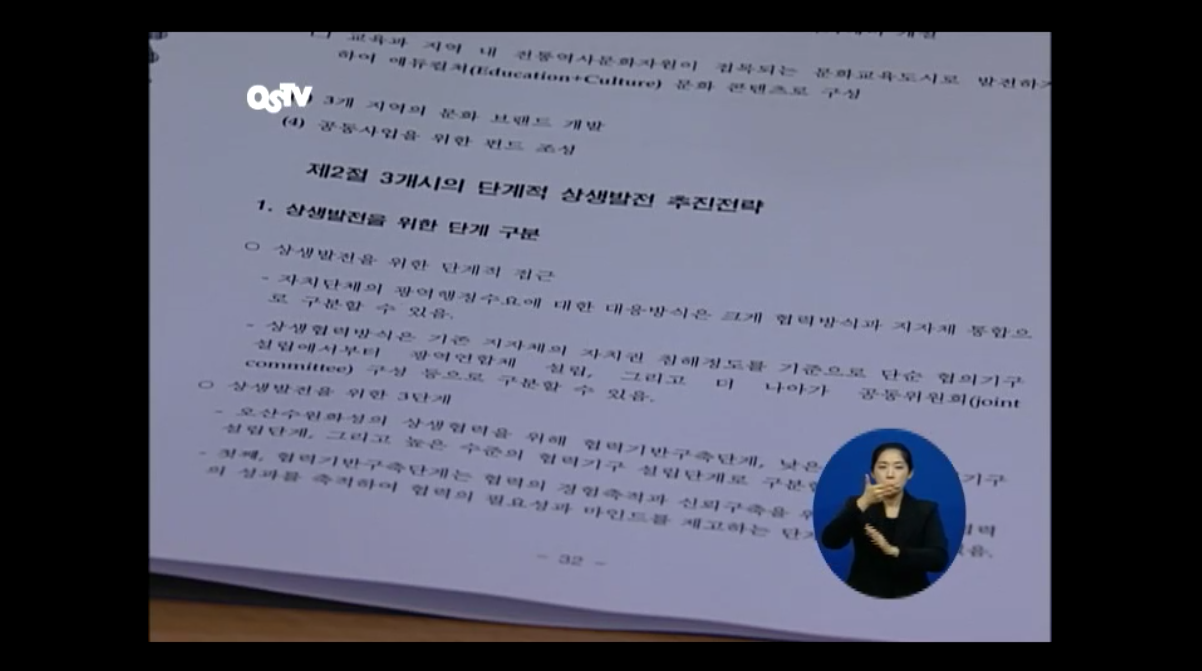 개발
□ 교육과 지역 내 전통역사문화자원이 접목되는 문화교육도시로 발전하기
하여 에듀컬처(Education+Culture) 문화 콘텐츠로 구성
OSTV
) 3개 지역의 문화 브랜드 개발
(4) 공동사업을 위한 펀드 조성
제2절 3개시의 단계적 상생발전 추진전략
1. 상생발전을 위한 단계 구분
○ 상생발전을 위한 단계적 접근
- 자치단체의 광역행정수요에 대한 대응방식은 크게 협력방식과 지자체 통합으
로 구분할 수 있음.
- 상생협력방식은 기존 지자체의 자치권 침해정도를 기준으로 단순 협의기구
설립에서부터 광역연합체 설립, 그리고 더 나아가 공동위원회(joint
committee) 구성 등으로 구분할 수 있음.
○ 상생발전을 위한 3단계
- 오산수원화성의 상생협력을 위해 협력기반구축단계, 낮은 기구
설립단계, 그리고 높은 수준의 협력기구 설립단계로 구분
- 첫째, 협력기반구축단계는 협력의 경험축적과 신뢰구축을 협력
의 성과를 축적하여 협력의 필요성과 마인드를 제고하는 있음.
- 32 -